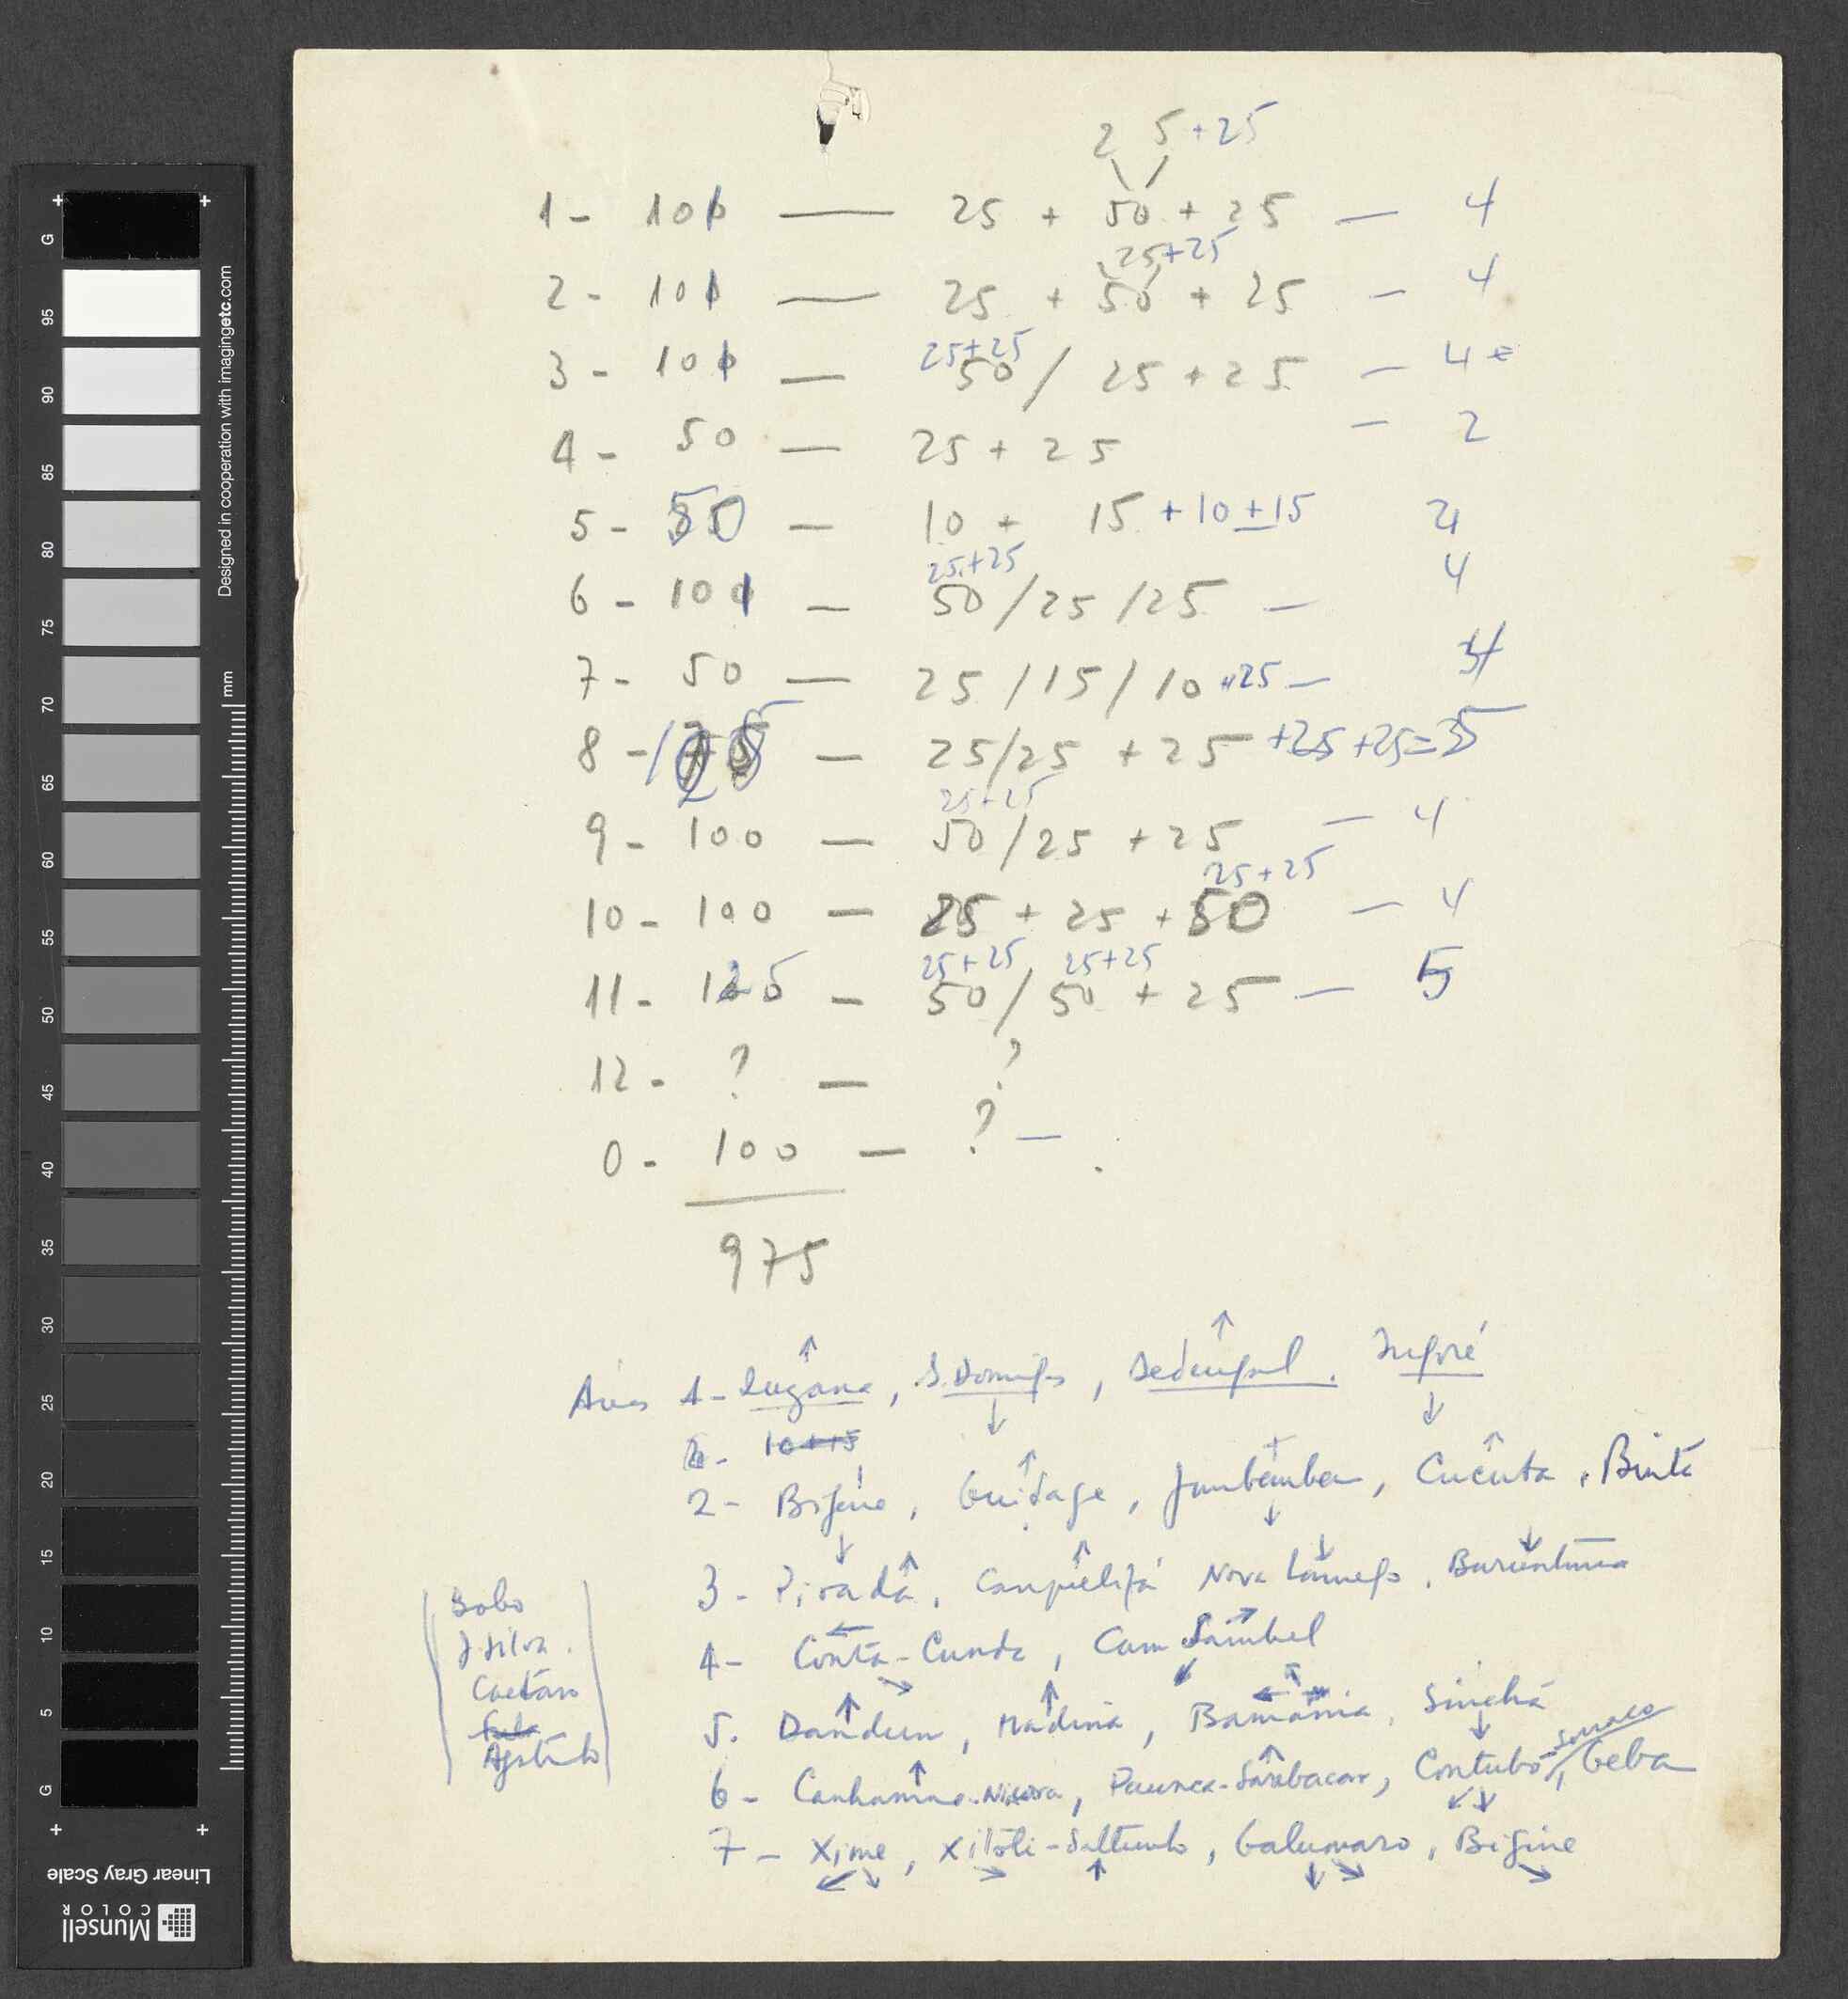 2 5+25
1 - 100 — 25 + 50 + 25 — 4
25+25
2 - 100 — 25 + 50 + 25 — 4
25+25
3 - 100 — 50 / 25 + 25 — 4
4 - 50 — 25 + 25 — 2
5 - 50 — 10 + 15 + 10 + 15 4
25+25
6 - 100 — 50 / 25 / 25 — 4
7 - 50 — 25 / 15 / 10 +25 — 4
8 - 125 — 25/25 + 25 +25 +25 = 5
25+25
9 - 100 — 50 / 25 + 25 — 4
25+25
10 - 100 — 25 + 25 + 50 — 4
25+25 25+25
11 - 125 — 50 / 50 + 25 — 5
12 - ? — ?
0 - 100 — ? —
975
1 - , S. Domingos,
10+15
2 - Bigine, Guidage, Jumbembem, Cucuta, Binta
3 - Pirada, Nova Lamego, Buruntuma
4 - Conta-Cunda, Cam Sambel
5. Dandum, Madina, , Sinchã
Sonaco
6 - , Contubo, Geba
7 - Xime, , Galumaro, Bigine
Bobo
J Silva.
Caetano
G
95
90
85
80
75
70
65
60
55
50
45
40
35
30
25
20
15
10
5
G
Designed in cooperation with imagingetc.com
mm
Linear Gray Scale
Munsell
COLOR